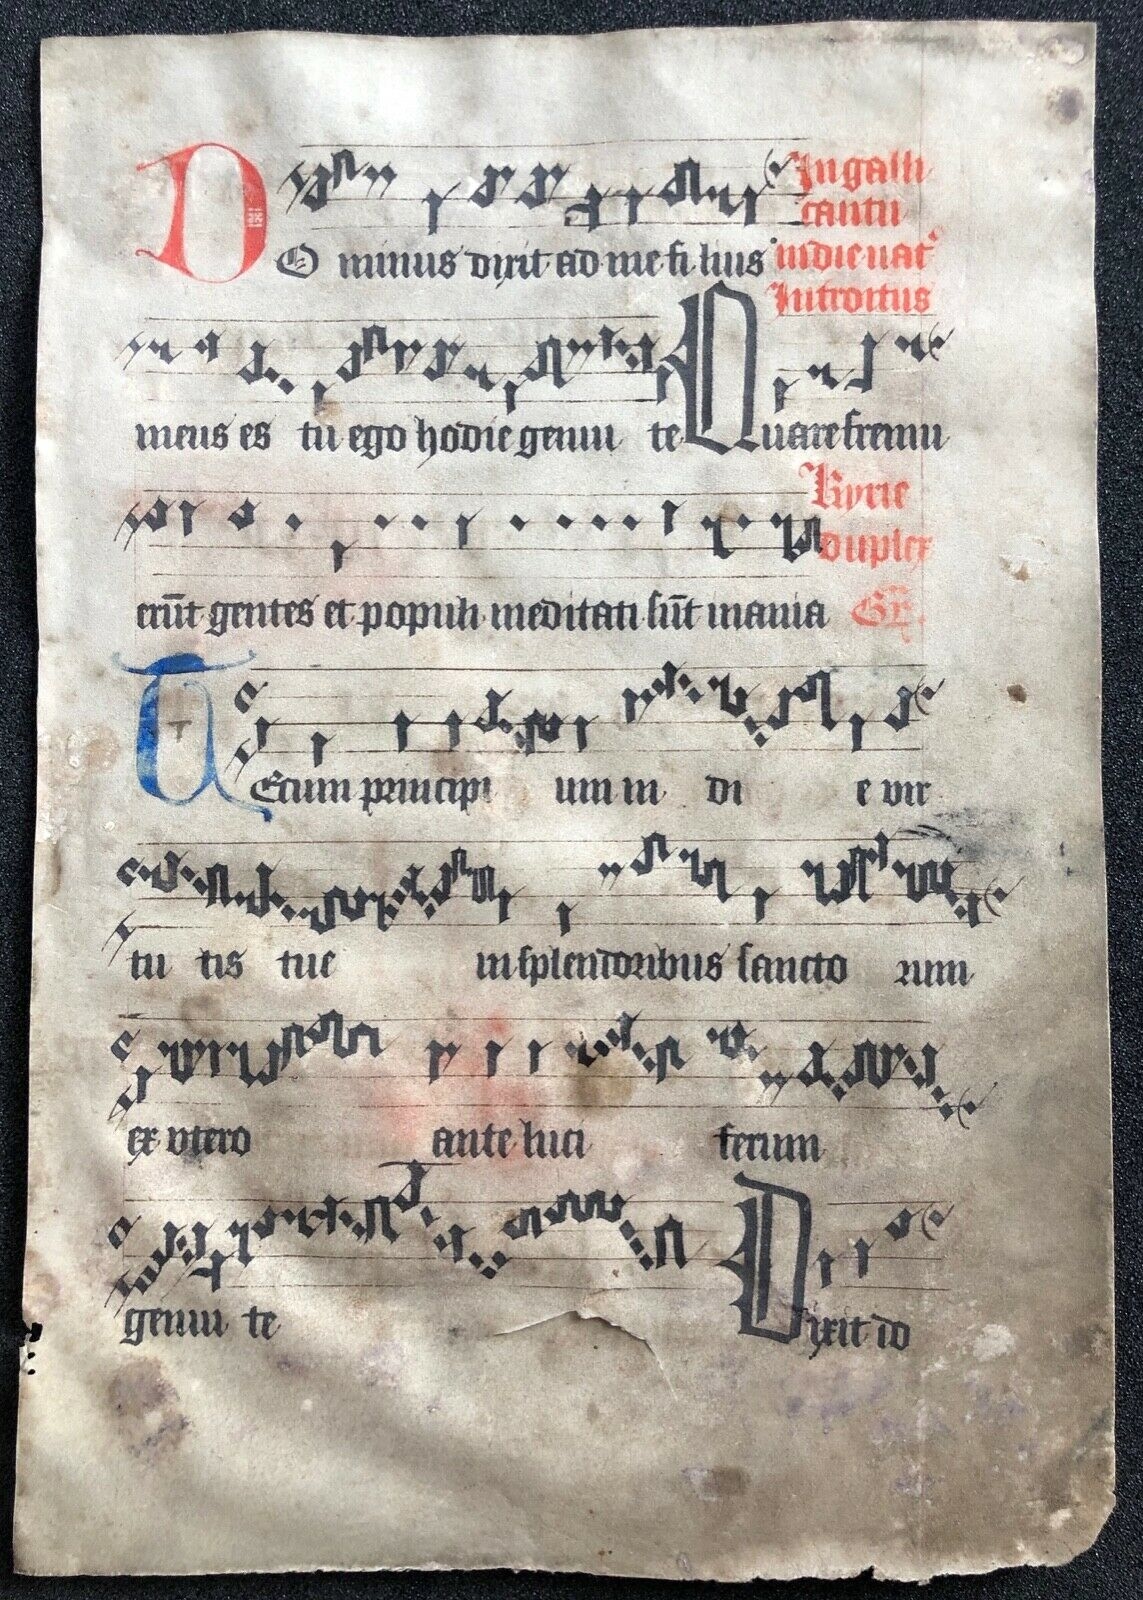 In galli
cantu
DO minus dixit ad me fi lius in die nat'
Introitus
meus es tu ego hodie genui te Quare fremu
Kyrie
duplex
erūt gentes et populi meditati sūt inania Gr.
TEcum principi um in di e vir
tu tis tue in splendoribus sancto rum
ex utero ante luci ferum
genui te Dixit do